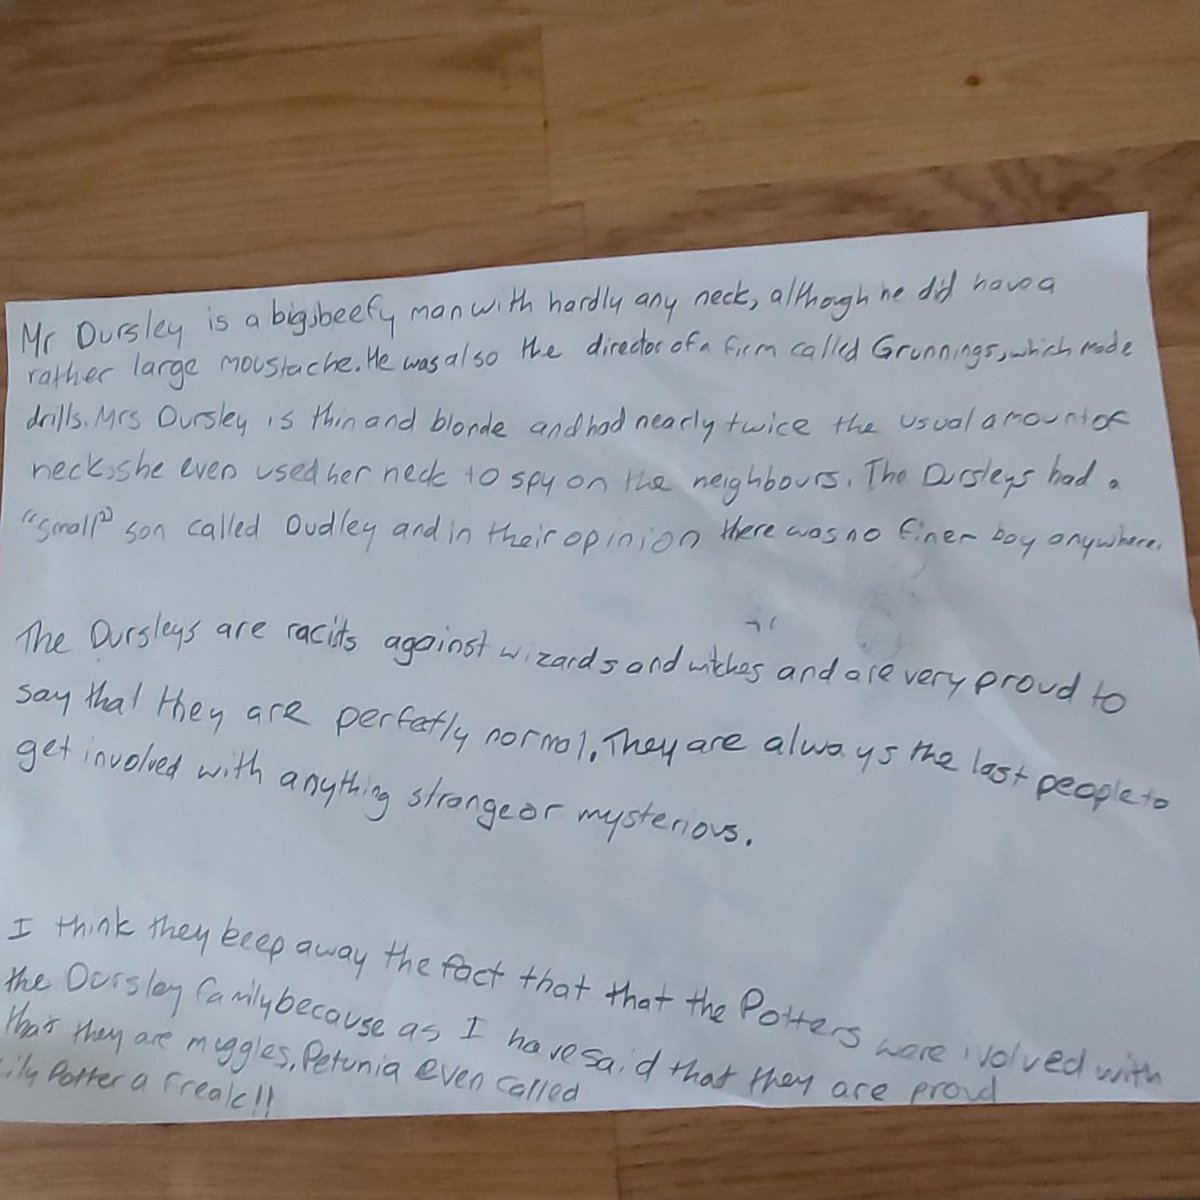 Mr Dursley is a big,beefy man with hardly any neck, although he did have a
rather large moustache. He was also the director of a firm called Grunnings, which made
drills. Mrs Dursley is thin and blonde and had nearly twice the usual amount of
neck, she even used her neck to spy on the neighbours. The Dursleys had a
"small" son called Dudley and in their opinion there was no finer boy anywhere.
The Dursleys are racits against wizards and witches and are very proud to
say that they are perfetly normal. They are always the last people to
get involved with anything strange or mysterious.
I think they keep away the fact that that the Potters were ivolved with
the Dursley family because as I have said that they are proud
that they are muggles. Petunia even called
ily Potter a freak!!